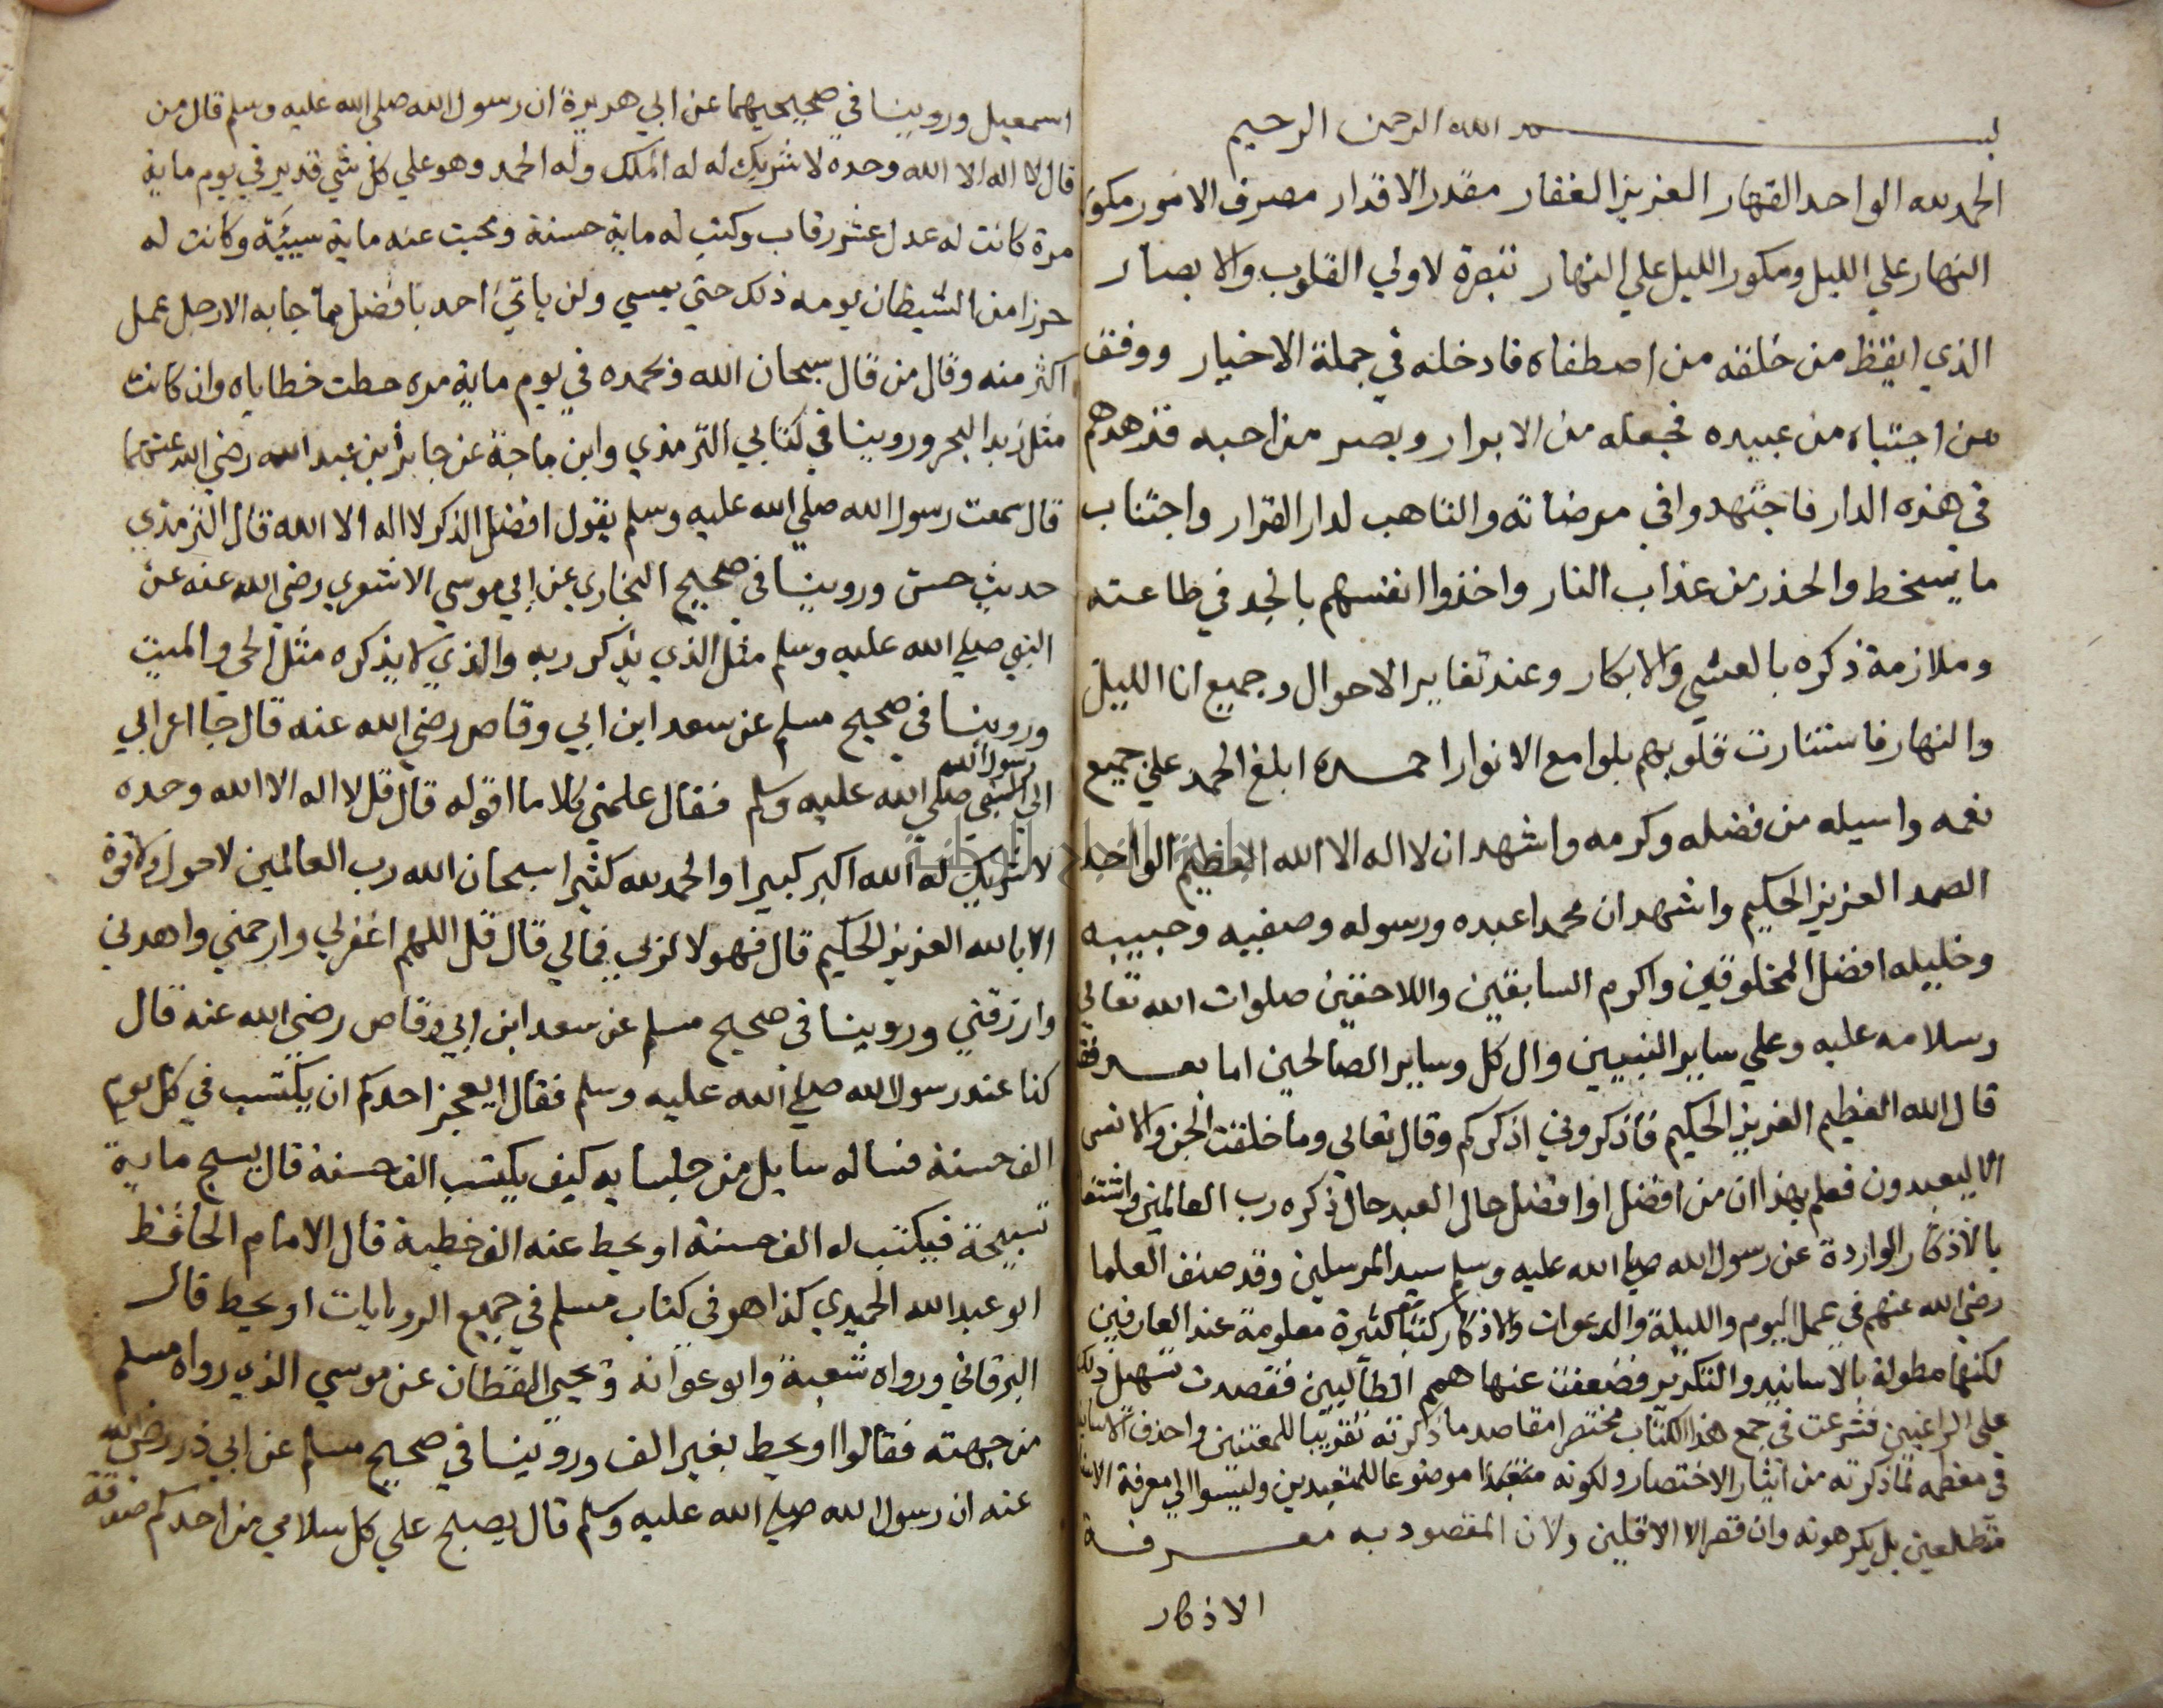 بسم الله الرحمن الرحيم
الحمد لله الواحد القهار العزيز الغفار مقدر الاقدار مصرف الامور مكور
النهار علي الليل ومكور الليل علي النهار تبصرة لاولي القلوب والابصار
الذي ايقظ من خلقه من اصطفاه فادخله في جملة الاخيار ووفق
من اجتباه من عبيده فجعله من الابرار وبصر من احبه فزهدهم
في هذه الدار فاجتهدوا في مرضاته والتاهب لدار القرار واجتناب
ما يسخط والحذر من عذاب النار واخذوا انفسهم بالجد في طاعته
وملازمة ذكره بالعشي والابكار وعند تغاير الاحوال وجميع انا الليل
والنهار فاستنارت قلوبهم بلوامع الانوار احمده ابلغ الحمد علي جميع
نعمه واسيله من فضله وكرمه واشهد ان لا اله الا الله العظيم الواحد
الصمد العزيز الحكيم واشهد ان محمدا عبده ورسوله وصفيه وحبيبه
وخليله افضل المخلوقين واكرم السابقين واللاحقين صلوات الله تعالي
وسلامه عليه وعلي ساير النبيين وال كل وساير الصالحين اما بعد فقد
قال الله العظيم العزيز الحكيم فاذكروني اذكركم وقال تعالي وما خلقت الجن والانس
الا ليعبدون فعلم بهذا ان من افضل او افضل حال العبد حال ذكره رب العالمين واشتغا
بالاذكار الواردة عن رسول الله صلي الله عليه وسلم سيد المرسلين وقد صنف العلما
رضي الله عنهم في عمل اليوم والليلة والدعوات والاذكار كتبا كثيرة معلومة عند العارفين
لكنها مطولة بالاسانيد والتكرير فضعفت عنها همم الطالبين فقصدت تسهيل ذلك
علي الراغبين فشرعت في جمع هذا الكتاب مختصرا مقاصد ما ذكرته تقريبا للمعتنين واحذف الاسانيد
في معظمه لما ذكرته من ايثار الاختصار ولكونه موضوعا للمتعبدين وليسوا الي معرفة الاسانيد
متطلعين بل يكرهونه وان قصر الا الاقلين ولان المقصود به معرفة
الاذكار
اسمعيل وروينا في صحيحيهما عن ابي هريرة ان رسول الله صلي الله عليه وسلم قال من
قال لا اله الا الله وحده لا شريك له له الملك وله الحمد وهو علي كل شي قدير في يوم ماية
مرة كانت له عدل عشر رقاب وكتب له ماية حسنة ومحيت عنه ماية سيئة وكانت له
حرزا من الشيطان يومه ذلك حتي يمسي ولن ياتي احد بافضل مما جا به الا رجل عمل
اكثر منه وقال من قال سبحان الله وبحمده في يوم ماية مره حطت خطاياه وان كانت
مثل زبد البحر وروينا في كتابي الترمذي وابن ماجة عن جابر ابن عبد الله رضي الله عنهما
قال سمعت رسول الله صلي الله عليه وسلم يقول افضل الذكر لا اله الا الله قال الترمذي
حديث حسن وروينا في صحيح البخاري عن ابي موسي الاشعري رضي الله عنه عن
النبي صلي الله عليه وسلم مثل الذي يذكر ربه والذي لا يذكره مثل الحي والميت
وروينا في صحيح مسلم عن سعد ابن ابي وقاص رضي الله عنه قال جا اعرابي
رسول الله
الي النبي صلي الله عليه وسلم فقال علمني كلاما اقوله قال قل لا اله الا الله وحده
لا شريك له الله اكبر كبيرا والحمد لله كثيرا سبحان الله رب العالمين لا حول ولا قوة
الا بالله العزيز الحكيم قال فهولا لربي فمالي قال قل اللهم اغفر لي وارحمني واهدني
وارزقني وروينا في صحيح مسلم عن سعد ابن ابي وقاص رضي الله عنه قال
كنا عند رسول الله صلي الله عليه وسلم فقال ايعجز احدكم ان يكتسب في كل يوم
الف حسنة فساله سايل من جلسايه كيف يكتسب الف حسنة قال يسبح ماية
تسبيحة فيكتب له الف حسنة او يحط عنه الف خطية قال الامام الحافظ
ابو عبد الله الحميدي كذا هو في كتاب مسلم في جميع الروايات او يحط قال
البرقاني ورواه شعبة وابو عوانه ويحيي القطان عن موسي الذي رواه مسلم
من جهته فقالوا ويحط بغير الف وروينا في صحيح مسلم عن ابي ذر رضي الله
عنه ان رسول الله صلي الله عليه وسلم قال يصبح علي كل سلامي من احدكم صدقة